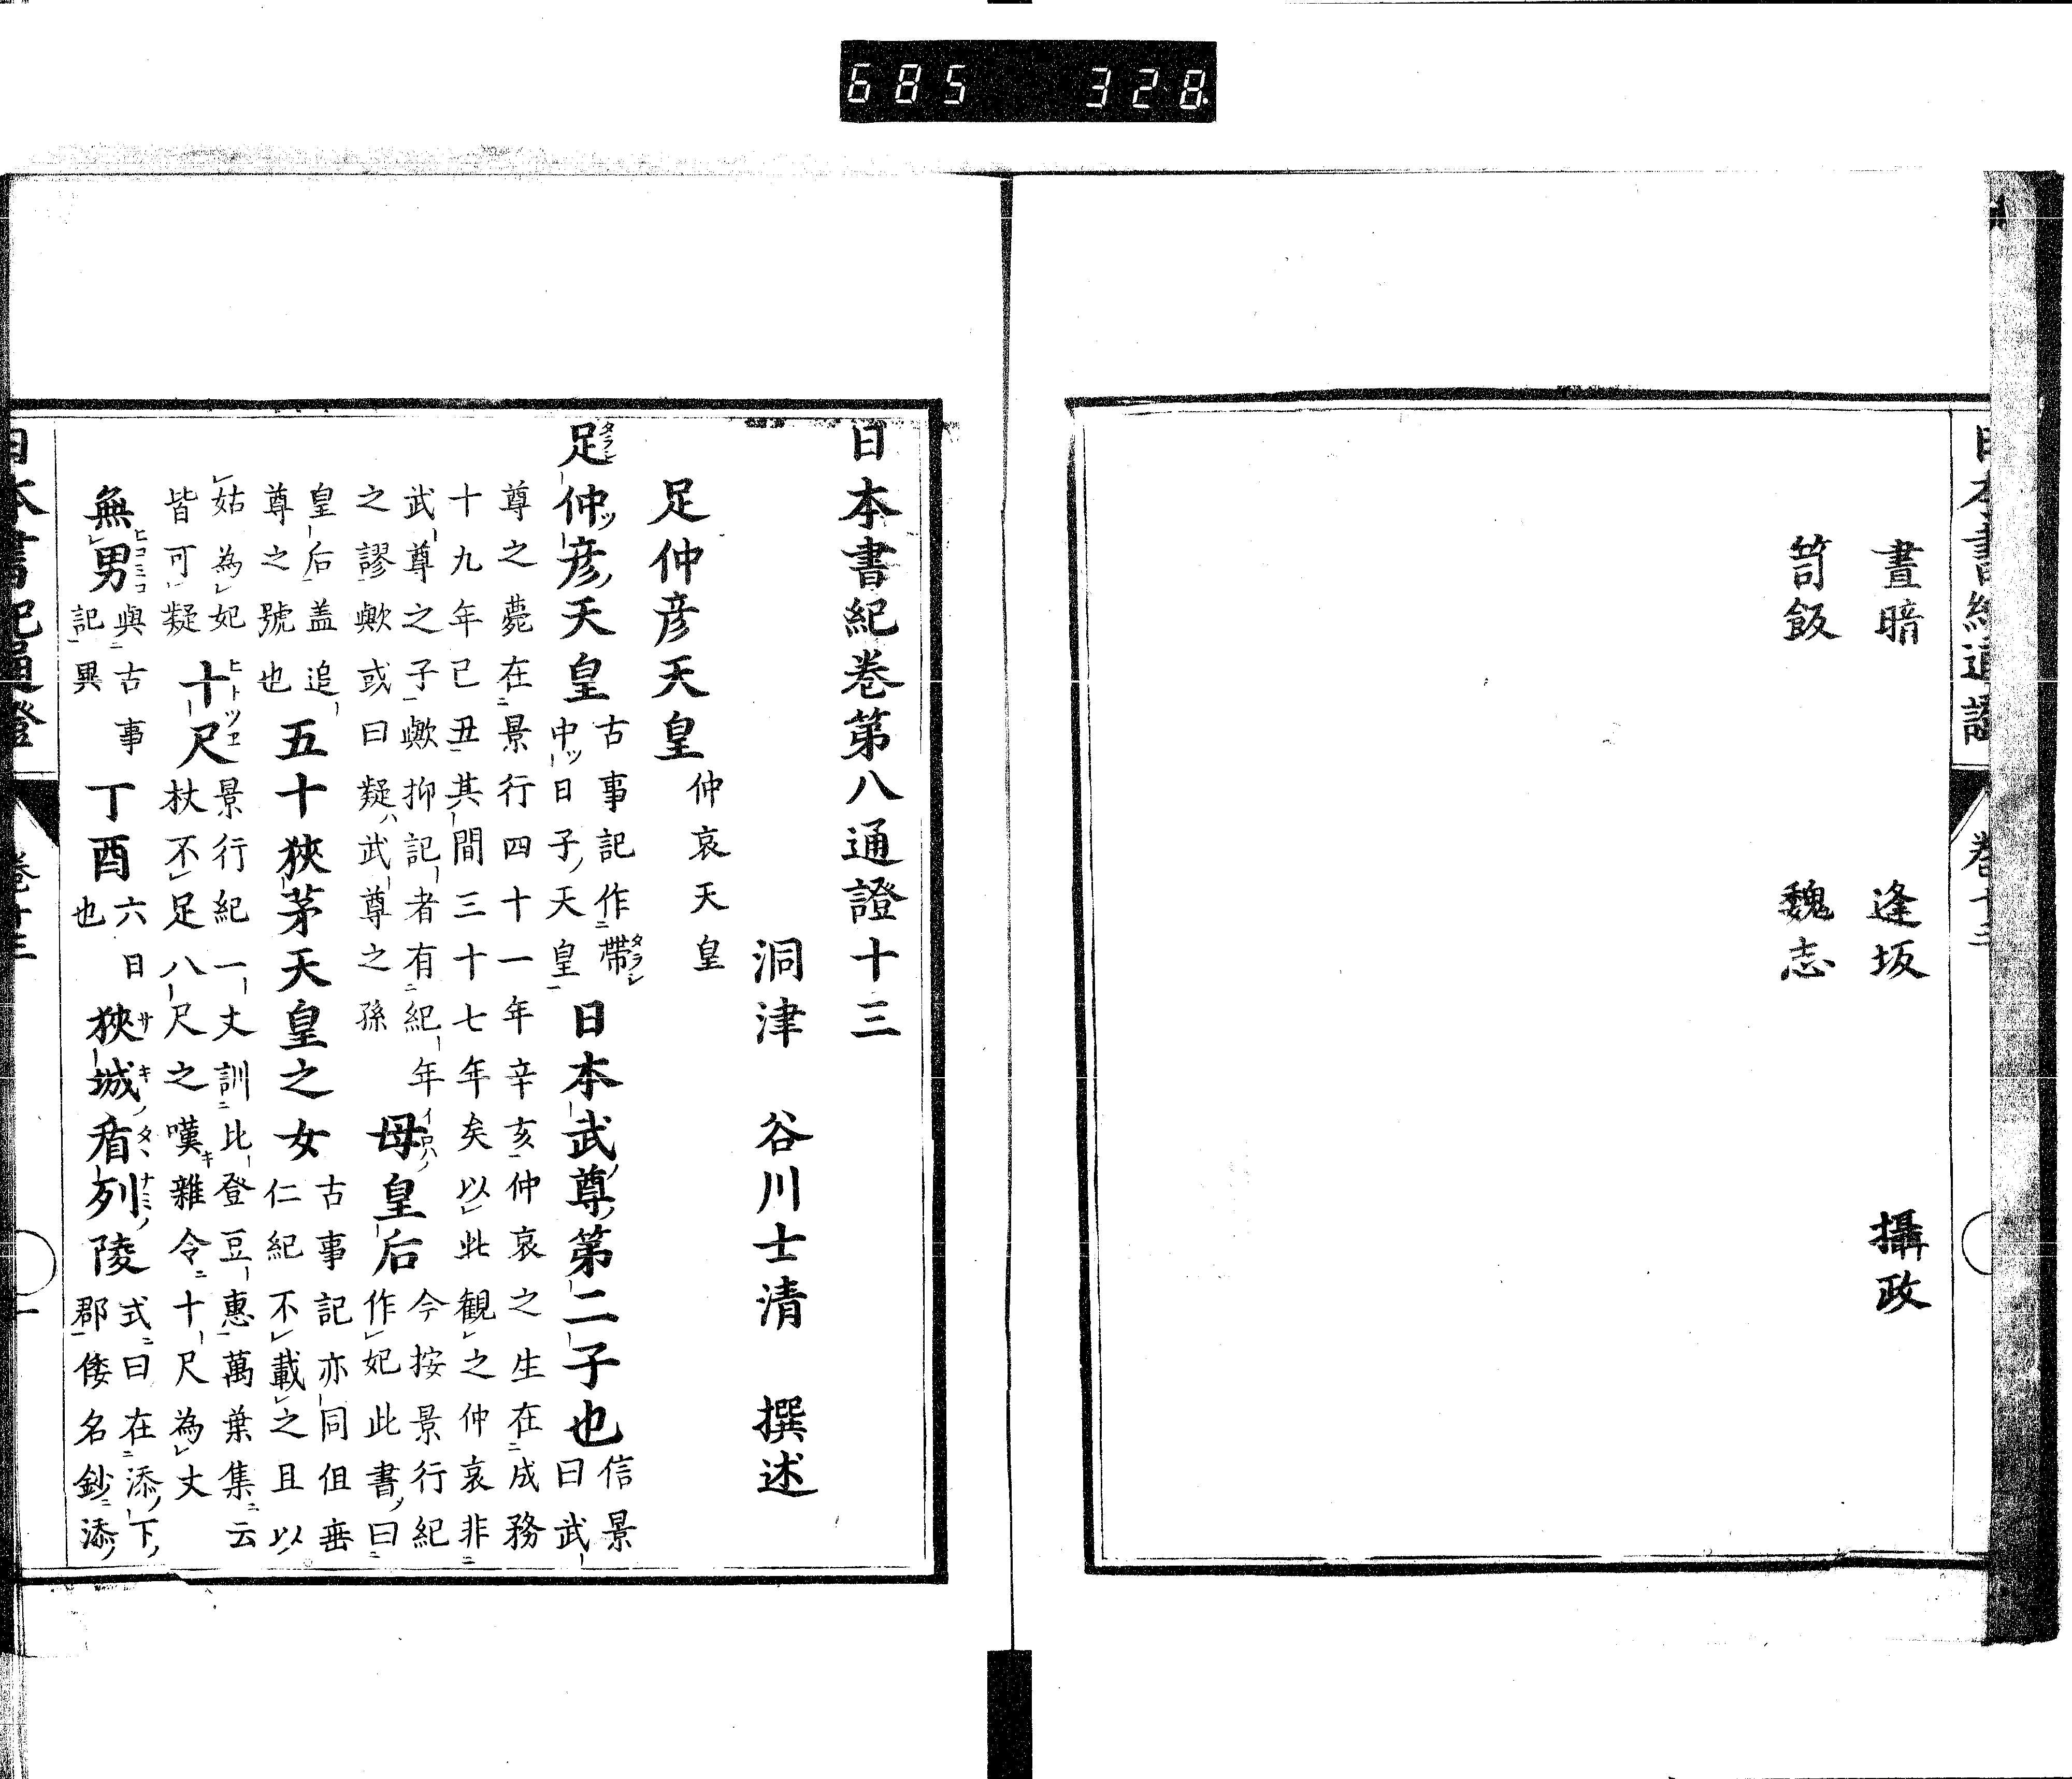 685 328
日本書紀通證 卷十三
晝暗 逢坂 攝政
笥飯 魏志
日本書紀巻第八通證十三
洞津 谷川士清 撰述
足仲彦天皇 仲哀天皇
足仲彦天皇 古事記作帶中日子天皇 日本武尊第二子也 信景曰武
尊之薨在景行四十一年辛亥仲哀之生在成務
十九年己丑其間三十七年矣以此観之仲哀非
武尊之子歟抑記者有紀年
之謬歟或曰疑武尊之孫 母皇后 今按景行紀作妃此書曰
皇后盖追尊之號也 五十狹茅天皇之女 古事記亦同但垂仁紀不載之且以
姑為妃皆可疑 十尺 景行紀一丈訓比登豆惠萬葉集云杖不足八尺之嘆雜令十尺為丈
無男 與古事記異 丁酉 六日也 狹城盾列陵 式曰在添下郡倭名鈔添
日本書紀通證 卷十三 一